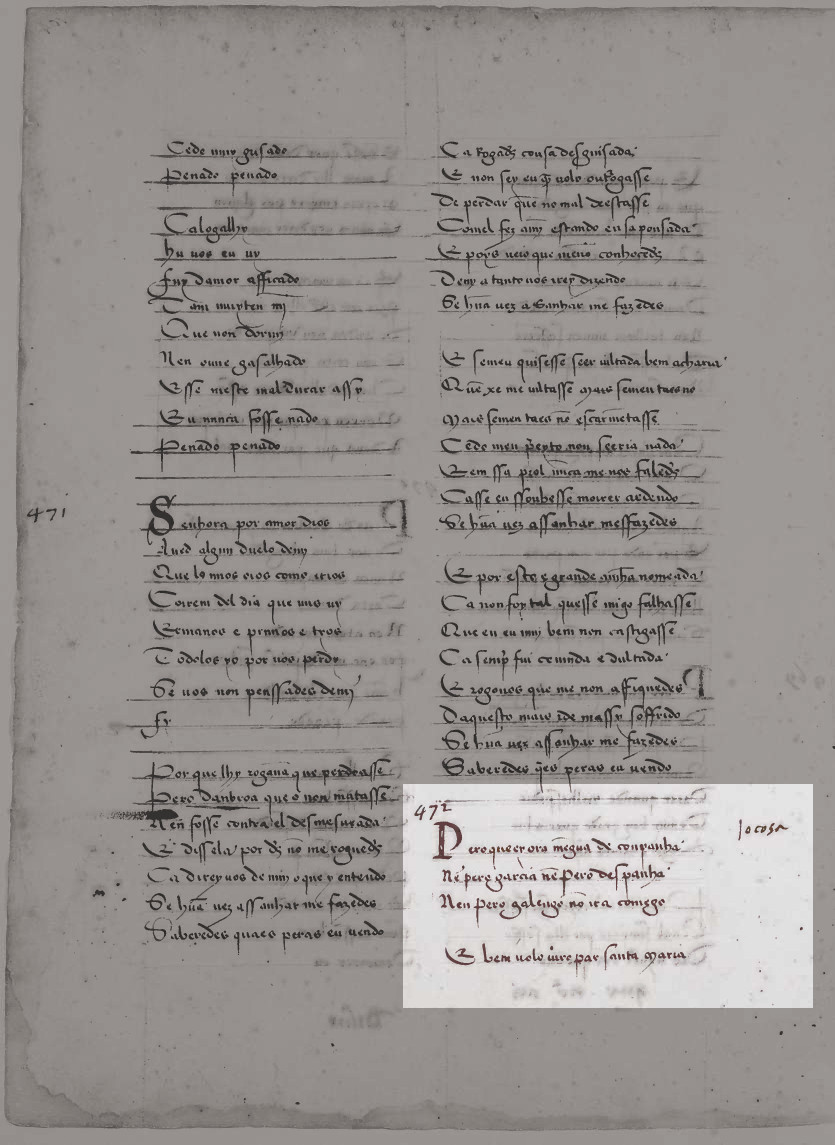 Cedo muy guysado
Penado penado
Ca logalhy
hu uos eu uy
fuy damor afficado
Tam muyten mj
Que non dormj
Nen ouue gasalhado
Esse meste mal durar assy
Eu nunca fosse nado
Penado penado
471
Senhora por amor dios
Aued algun duelo demj
Que los mios oios como rrios
Corren del dia que uus uy
Ermanos e primos e tyos
Todolos yo por uos perdy
Se uos non penssades demj
fy
Por que lhy rogaua que perdoasse
Pero Danbroa que o non matasse
Nen fosse contra el desmesurada
E dissela por ds no me roguedes
Ca direyuos de mjn o que y entendo
Se hua uez assanhar me fazedes
Saberedes quaes peras eu uendo
Ca rogades cousa desguisada
E non sey eu q̄ uolo outrogasse
De perdoar quē no mal deestasse
Comel fez amj estando en sa pousada
E poys ueio que me nō conhocedes
Demj a tanto uos irey dizendo
Se hua uez a sanhar me fazedes
E semeu quisesse seer uiltada bem acharia
Quē xe me uiltasse mays semen taes no
mays semen taes nō escarmetasse
Cedo meu preyto non seeria nada
E em ssa prol nūca me uos faledes
Ca sse eu ssoubesse morrer ardendo
Se hua uez assanhar messfazedes
E por esto e grande amha nomeada
Ca non foy tal quesse migo falhasse
Que eu eu mui bem non castigasse
Ca semp̄ fui temuda e dultada
E rogouos que me non affiquedes
Daquesto mais ide massy soffrido
Se hua uez assanhar me fazedes
Saberedes q̄es peras eu uendo
472
Jocosa
Pero que ey ora mēgua de conpanha
Nē pero garcia nē pero despanha
Nen pero galengo nō ira comego
E bem uolo iuro par santa maria